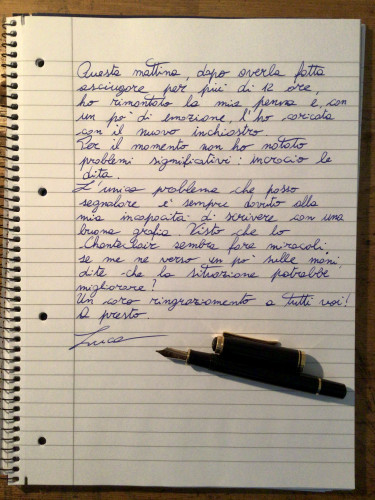 Questa mattina, dopo averla fatta
asciugare per più di 12 ore,
ho rimontato la mia penna e, con
un po' di emozione, l'ho caricata
con il nuovo inchiostro.
Per il momento non ho notato
problemi significativi: incrocio le
dita.
L'unico problema che posso
segnalare è sempre dovuto alla
mia incapacità di scrivere con una
buona grafia. Visto che lo
Chanteclair sembra fare miracoli,
se me ne verso un po' sulle mani,
dite che la situazione potrebbe
migliorare?
Un caro ringraziamento a tutti voi!
A presto.
Luca